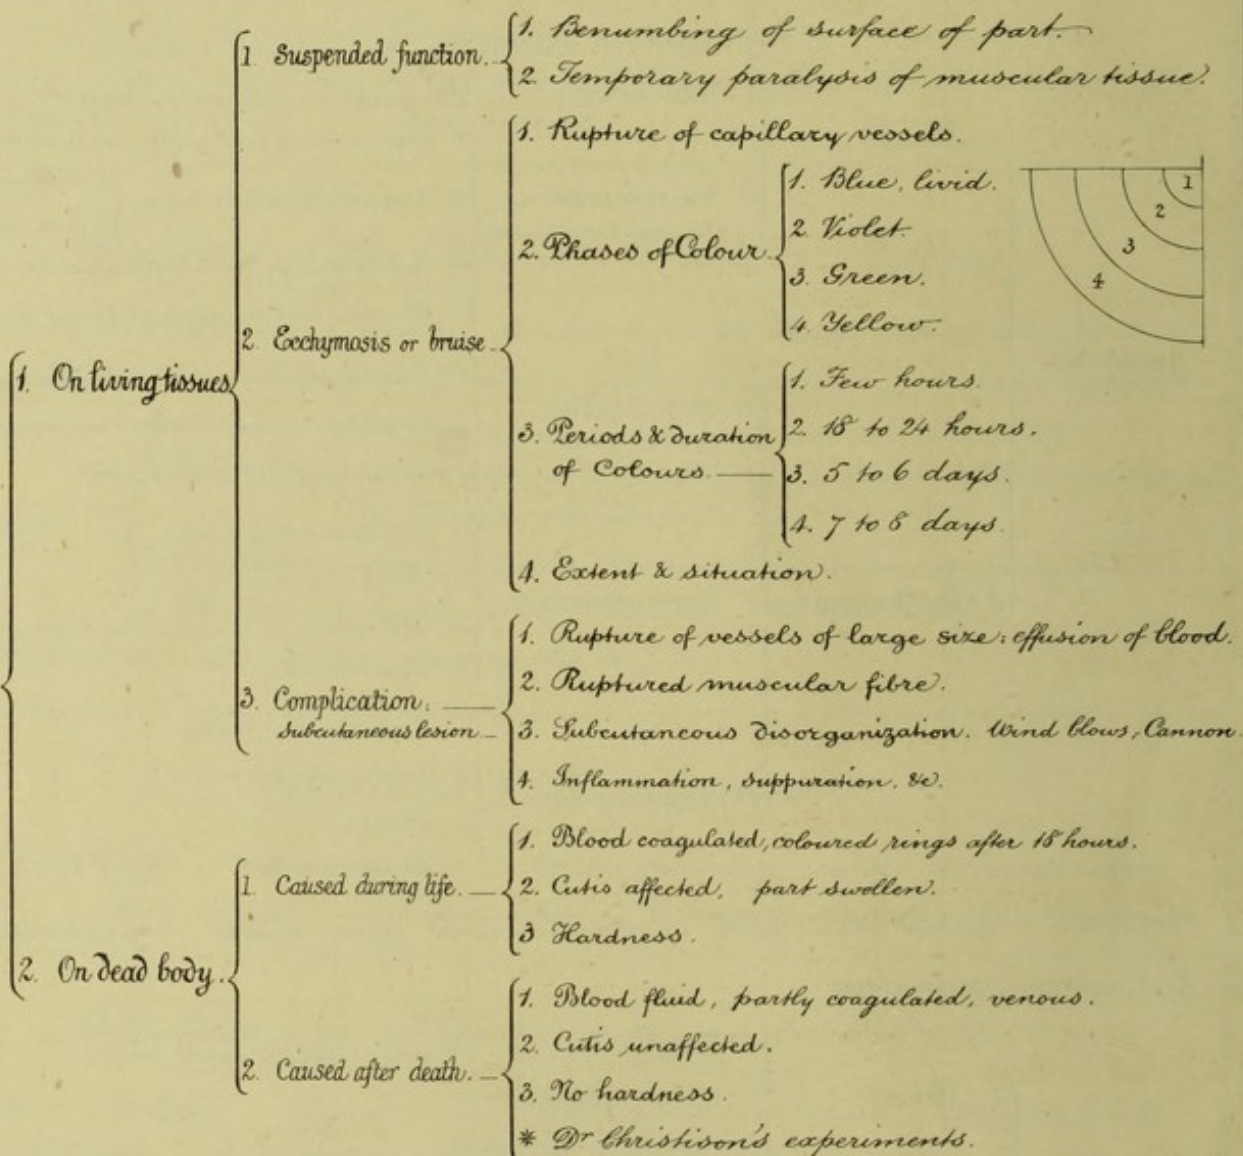 1. On living tissues
1 Suspended function.
1. Benumbing of surface of part.
2. Temporary paralysis of muscular tissue.
2. Ecchymosis or bruise
1. Rupture of capillary vessels.
2. Phases of Colour
1. Blue, livid.
2. Violet.
3. Green.
4. Yellow.
1
2
3
4
3. Periods & duration
of Colours.
1. Few hours.
2. 18 to 24 hours.
3. 5 to 6 days.
4. 7 to 8 days
4. Extent & situation.
3. Complication.
Subcutaneous lesion
1. Rupture of vessels of large size: effusion of blood.
2. Ruptured muscular fibre.
3. Subcutaneous disorganization. Wind blows, Cannon.
4. Inflammation, suppuration, &c.
2. On dead body.
1. Caused during life.
1. Blood coagulated, coloured rings after 18 hours.
2. Cutis affected, part swollen.
3 Hardness.
2. Caused after death.
1. Blood fluid, partly coagulated, venous.
2. Cutis unaffected.
3. No hardness.
* Dr Christison's experiments.